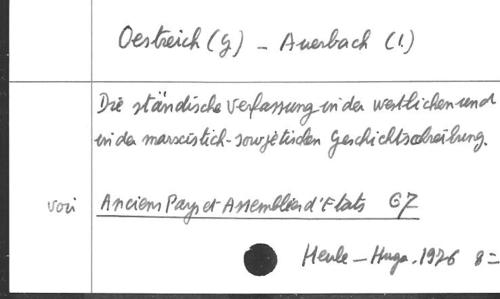 Oestreich (G) - Auerbach (I.)
Die ständische Verfassung in der westlichen und
in der marxistisch-sowjetischen Geschichtschreibung.
voir Anciens Pays et Assemblées d'Etats 67
Heule - Huga. 1976 8=